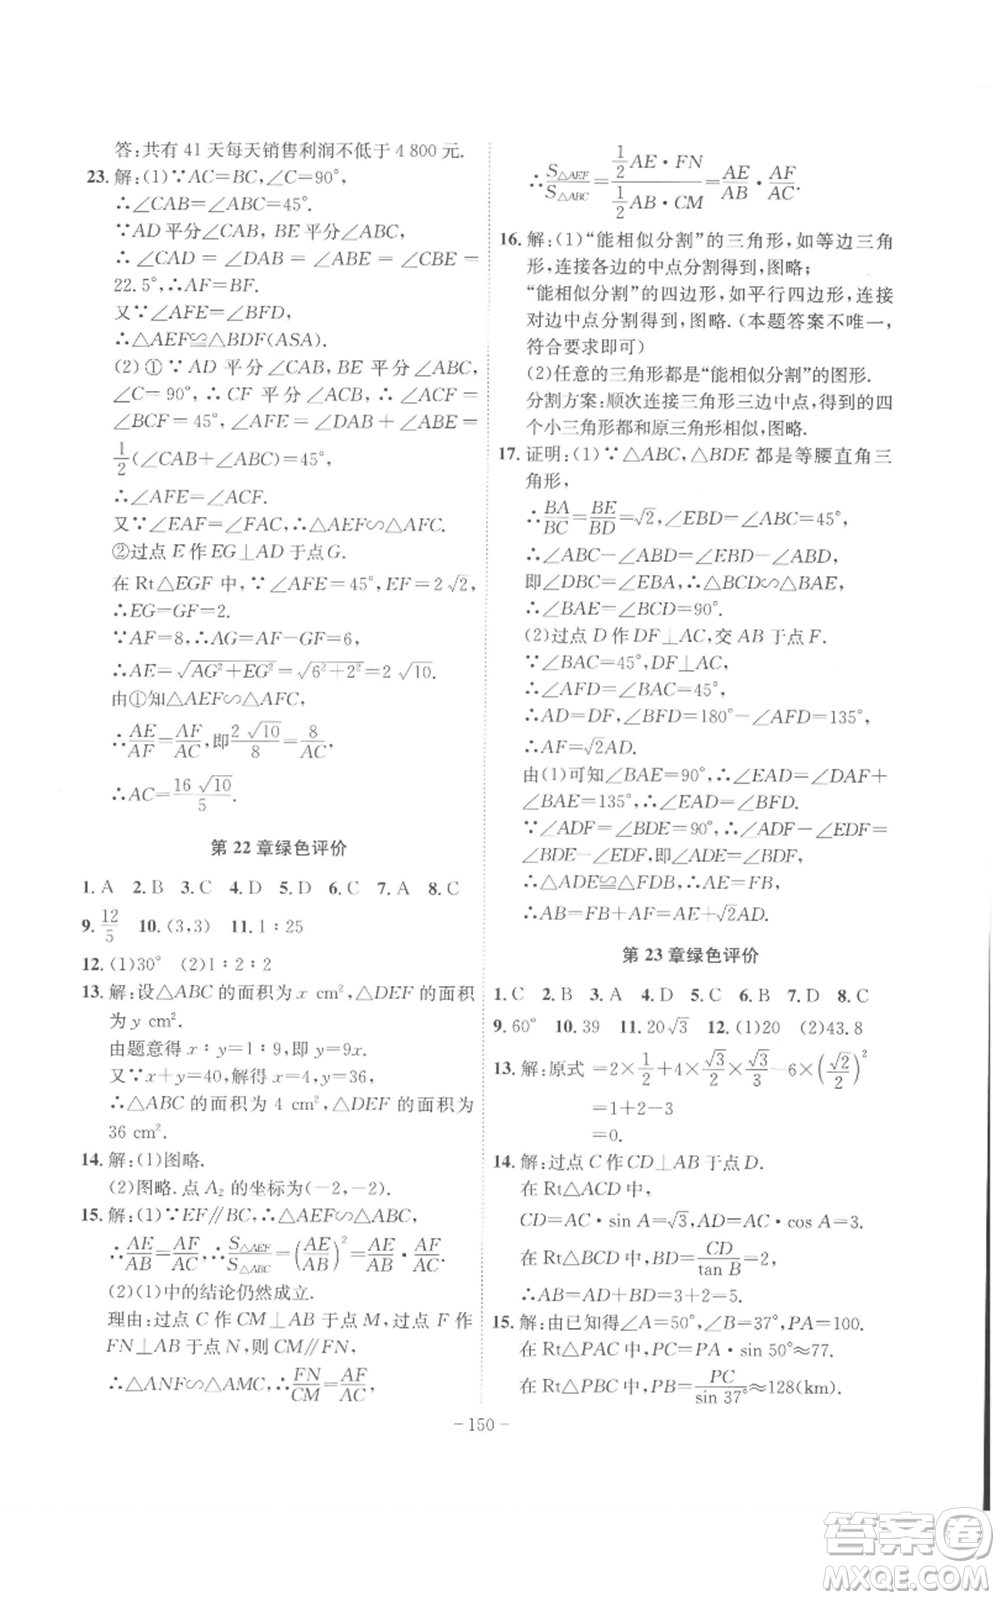 答:共有 41 天每天销售利润不低于 4 800 元.
23. 解:(1)∵AC=BC,∠C=90°,
∴∠CAB=∠ABC=45°.
∵AD 平分∠CAB, BE 平分∠ABC,
∴∠CAD = ∠DAB = ∠ABE = ∠CBE =
22.5°,∴AF=BF.
又∵∠AFE=∠BFD,
∴△AEF≌△BDF(ASA).
(2) ① ∵ AD 平分∠CAB, BE 平分∠ABC,
∠C= 90°, ∴ CF 平分∠ACB, ∴ ∠ACF =
∠BCF = 45°, ∵ ∠AFE = ∠DAB + ∠ABE =
1/2(∠CAB+∠ABC)=45°,
∴∠AFE=∠ACF.
又∵∠EAF=∠FAC,∴△AEF∽△AFC.
②过点 E 作 EG⊥AD 于点 G.
在 Rt△EGF 中,∵∠AFE=45°,EF=2√2,
∴EG=GF=2.
∵AF=8,∴AG=AF-GF=6,
∴AE=√(AG²+EG²)=√(6²+2²)=2√10.
由①知△AEF∽△AFC,
∴AE/AF=AF/AC,即2√10/8=8/AC,
∴AC=16√10/5.
第 22 章绿色评价
1. A 2. B 3. C 4. D 5. D 6. C 7. A 8. C
9. 12/5 10. (3,3) 11. 1∶25
12. (1)30° (2)1∶2∶2
13. 解:设△ABC 的面积为 x cm²,△DEF 的面积
为 y cm².
由题意得 x∶y=1∶9,即 y=9x.
又∵x+y=40,解得 x=4,y=36,
∴△ABC 的面积为 4 cm²,△DEF 的面积为
36 cm².
14. 解:(1)图略.
(2)图略.点 A₂ 的坐标为(-2,-2).
15. 解:(1)∵EF∥BC,∴△AEF∽△ABC,
∴AE/AB=AF/AC,∴S△AEF/S△ABC=(AE/AB)²=AE/AB·AF/AC.
(2)(1)中的结论仍然成立.
理由:过点 C 作 CM⊥AB 于点 M,过点 F 作
FN⊥AB 于点 N,则 CM∥FN,
∴△ANF∽△AMC,∴FN/CM=AF/AC,
∴S△AEF/S△ABC=(1/2 AE·FN)/(1/2 AB·CM)=AE/AB·AF/AC.
16. 解:(1)“能相似分割”的三角形,如等边三角
形,连接各边的中点分割得到,图略;
“能相似分割”的四边形,如平行四边形,连接
对边中点分割得到,图略.(本题答案不唯一,
符合要求即可)
(2)任意的三角形都是“能相似分割”的图形.
分割方案:顺次连接三角形三边中点,得到的四
个小三角形都和原三角形相似,图略.
17. 证明:(1)∵△ABC,△BDE 都是等腰直角三
角形,
∴BA/BC=BE/BD=√2,∠EBD=∠ABC=45°,
∴∠ABC-∠ABD=∠EBD-∠ABD,
即∠DBC=∠EBA,∴△BCD∽△BAE,
∴∠BAE=∠BCD=90°.
(2)过点 D 作 DF⊥AC,交 AB 于点 F.
∵∠BAC=45°,DF⊥AC,
∴∠AFD=∠BAC=45°,
∴AD=DF,∠BFD=180°-∠AFD=135°,
∴AF=√2AD.
由(1)可知∠BAE=90°,∴∠EAD=∠DAF+
∠BAE=135°,∴∠EAD=∠BFD.
∵∠ADF=∠BDE=90°,∴∠ADF-∠ADB=
∠BDE-∠ADB,即∠ADE=∠FDB,
∴△ADE≌△FDB,∴AE=FB,
∴AB=FB+AF=AE+√2AD.
第 23 章绿色评价
1. C 2. B 3. A 4. D 5. C 6. B 7. D 8. C
9. 60° 10. 39 11. 20√3 12. (1)20 (2)43.8
13. 解:原式 =2×1/2+4×√3/2×√3/3-6×(√2/2)²
=1+2-3
=0.
14. 解:过点 C 作 CD⊥AB 于点 D.
在 Rt△ACD 中,
CD=AC·sin A=√3,AD=AC·cos A=3.
在 Rt△BCD 中,BD=CD/tan B=2,
∴AB=AD+BD=3+2=5.
15. 解:由已知得∠A=50°,∠B=37°,PA=100.
在 Rt△PAC 中,PC=PA·sin 50°≈77.
在 Rt△PBC 中,PB=PC/sin 37°≈128(km).
- 150 -
答案卷
MXQE.COM